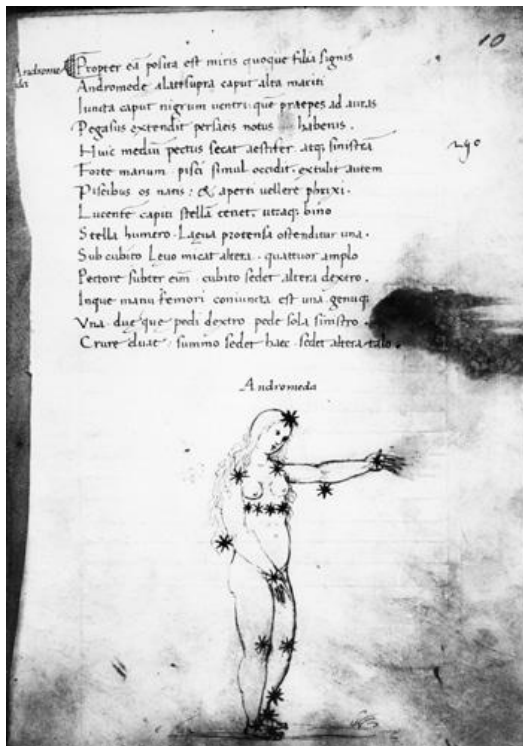 10
Androme
da
Propter eā posita est miris quoque filia signis
Andromede supra caput alta mariti
Iuncta caput nigrum ventri que praepes ad auras
Pegasus extendit persaeis notus habenis.
Huic mediū pectus secat aestifer atq; sinistrā
Forte manum pisci simul occidit. extulit autem
Piscibus os nans: & aperti vellere phrixi.
Lucentē capiti stellā tenet. utraq; bino
Stella humero. Laeua protensa ostenditur una.
Sub cubito Leuo micat altera. quattuor amplo
Pectore subter eim. cubito sedet altera dextro.
Inque manu femori coniuncta est una. genuq;
Vna. due que pedi dextro pede sola sinistro.
Crure summo sedet haec. sedet altera talo.
Andromeda